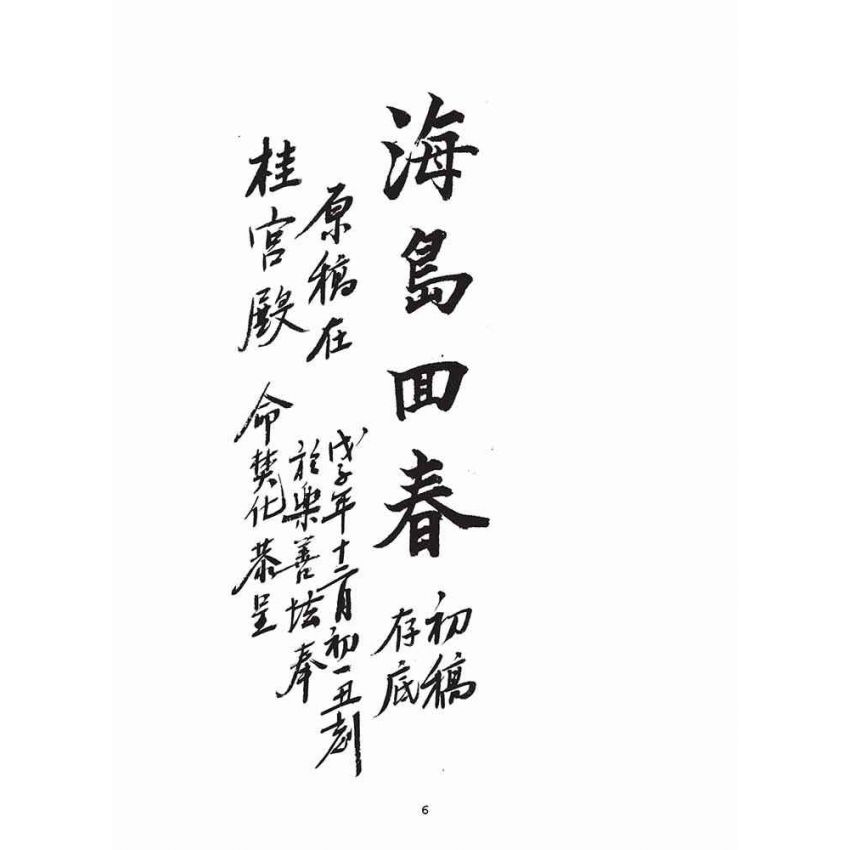 海島回春
初稿
存底
原稿在
桂宮殿
戊子年十二月初一丑刻
於樂善壇奉
命焚化恭呈
6